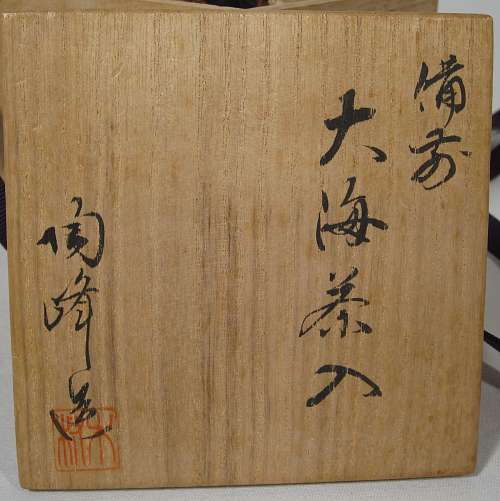 備前
大海茶入
陶峰造